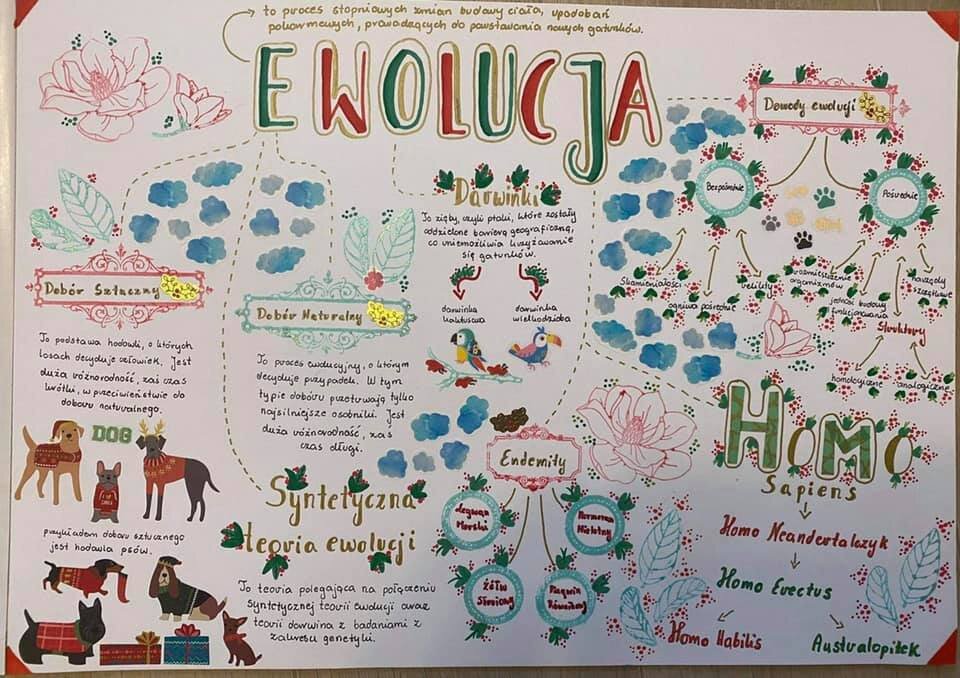 to proces stopniowych zmian budowy ciała, upodobań
pokarmowych, prowadzących do powstawania nowych gatunków.
EWOLUCJA
Dobór Sztuczny
To podstawa hodowli, o których
losach decyduje człowiek. Jest
duża różnorodność, zaś czas
krótki, w przeciwieństwie do
doboru naturalnego.
DOG
przykładem doboru sztucznego
jest hodowla psów.
Dobór Naturalny
To proces ewolucyjny, o którym
decyduje przypadek. W tym
typie doboru przetrwają tylko
najsilniejsze osobniki. Jest
duża różnorodność, zaś
czas długi.
Syntetyczna
teoria ewolucji
To teoria polegająca na połączeniu
Syntetycznej teorii ewolucji oraz
teorii darwina z badaniami z
zakresu genetyki.
Darwinki
To zięby, czyli ptaki, które zostały
oddzielone barierą geograficzną,
co uniemożliwia krzyżowanie
się gatunków.
darwinka
kaktusowa
darwinka
wielkodzioba
Endemity
Legwan
Morski
Żółw
Słoniowy
Pingwin
Równikowy
Dowody ewolucji
Bezpośrednie
Pośrednie
Skamieniałości
ogniwa pośrednie
relikty
rozmieszczenie
organizmów
jedność budowy
funkcjonowania
narządy
szczątkowe
Struktury
homologiczne
analogiczne
HOMO
Sapiens
Homo Neandertalczyk
Homo Erectus
Homo Habilis
Australopitek